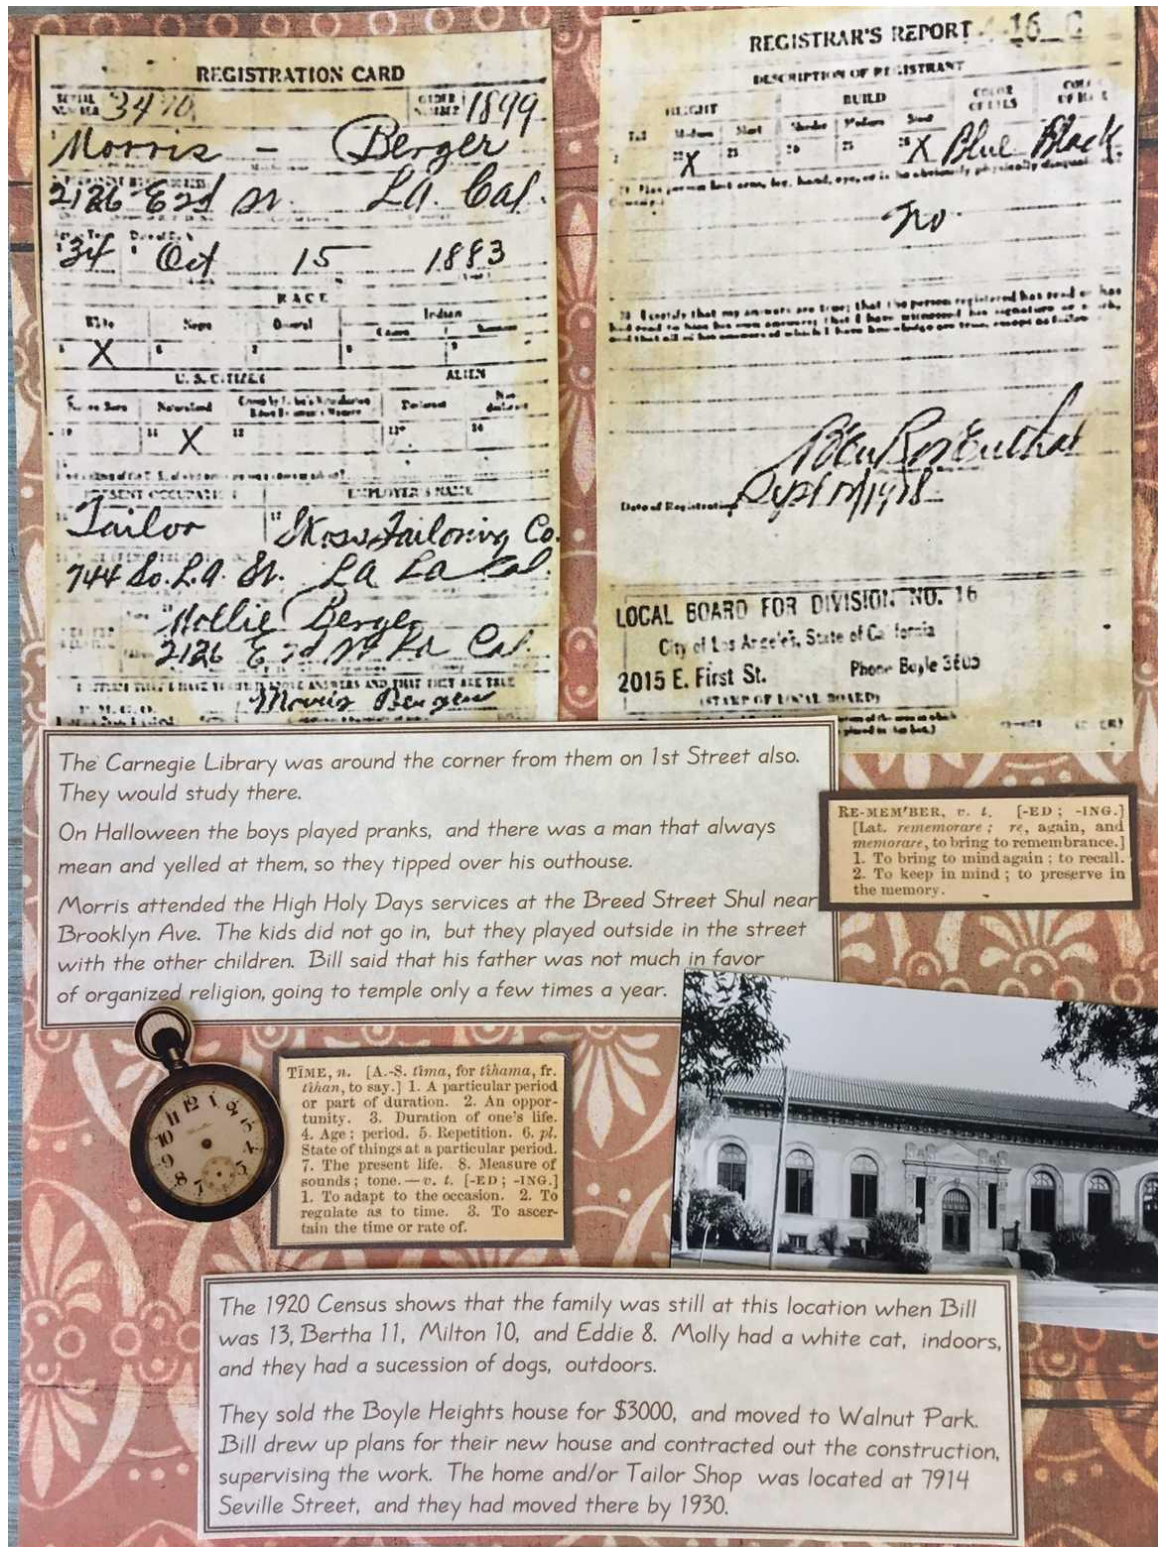 REGISTRATION CARD
SERIAL NUMBER 3470 ORDER NUMBER 1899
Morris - Berger
2126 E 2d St. La. Cal.
34 Oct 15 1883
RACE
White Negro Oriental Indian
X
U. S. CITIZEN ALIEN
Native Born Naturalized
X
PRESENT OCCUPATION EMPLOYER'S NAME
Tailor Tailoring Co.
744 So. L.A. St. La La Cal.
Mollie Berger
2126 E 2d St La Cal.
I AFFIRM THAT I HAVE VERIFIED ABOVE ANSWERS AND THAT THEY ARE TRUE
Morris Berger
REGISTRAR'S REPORT 16 C
DESCRIPTION OF REGISTRANT
HEIGHT BUILD COLOR OF EYES COLOR OF HAIR
Tall Medium Short Slender Medium Stout
X X Blue Black
No.
Ben Rosenthal
Date of Registration Sept 12/1918
LOCAL BOARD FOR DIVISION NO. 16
City of Los Angeles, State of California
2015 E. First St. Phone Boyle 3605
(STAMP OF LOCAL BOARD)
The Carnegie Library was around the corner from them on 1st Street also.
They would study there.
On Halloween the boys played pranks, and there was a man that always
mean and yelled at them, so they tipped over his outhouse.
Morris attended the High Holy Days services at the Breed Street Shul near
Brooklyn Ave. The kids did not go in, but they played outside in the street
with the other children. Bill said that his father was not much in favor
of organized religion, going to temple only a few times a year.
RE-MEM'BER, v. t. [-ED ; -ING.]
[Lat. rememorare ; re, again, and
memorare, to bring to remembrance.]
1. To bring to mind again ; to recall.
2. To keep in mind ; to preserve in
the memory.
TĪME, n. [A.-S. tīma, for tīhama, fr.
tīhan, to say.] 1. A particular period
or part of duration. 2. An oppor-
tunity. 3. Duration of one's life.
4. Age ; period. 5. Repetition. 6. pl.
State of things at a particular period.
7. The present life. 8. Measure of
sounds ; tone. — v. t. [-ED ; -ING.]
1. To adapt to the occasion. 2. To
regulate as to time. 3. To ascer-
tain the time or rate of.
The 1920 Census shows that the family was still at this location when Bill
was 13, Bertha 11, Milton 10, and Eddie 8. Molly had a white cat, indoors,
and they had a sucession of dogs, outdoors.
They sold the Boyle Heights house for $3000, and moved to Walnut Park.
Bill drew up plans for their new house and contracted out the construction,
supervising the work. The home and/or Tailor Shop was located at 7914
Seville Street, and they had moved there by 1930.